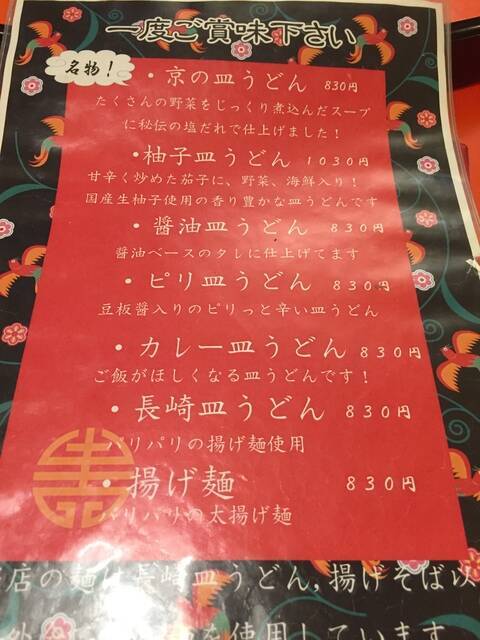 一度ご賞味下さい
名物！
・京の皿うどん 830円
たくさんの野菜をじっくり煮込んだスープ
に秘伝の塩だれで仕上げました！
・柚子皿うどん 1030円
甘辛く炒めた茄子に、野菜、海鮮入り！
国産生柚子使用の香り豊かな皿うどんです
・醤油皿うどん 830円
醤油ベースのタレに仕上げてます
・ピリ皿うどん 830円
豆板醤入りのピリっと辛い皿うどん
・カレー皿うどん 830円
ご飯がほしくなる皿うどんです！
・長崎皿うどん 830円
パリパリの揚げ麺使用
・揚げ麺 830円
バリバリの太揚げ麺
店の麺は長崎皿うどん,揚げそば以
外
を使用しています